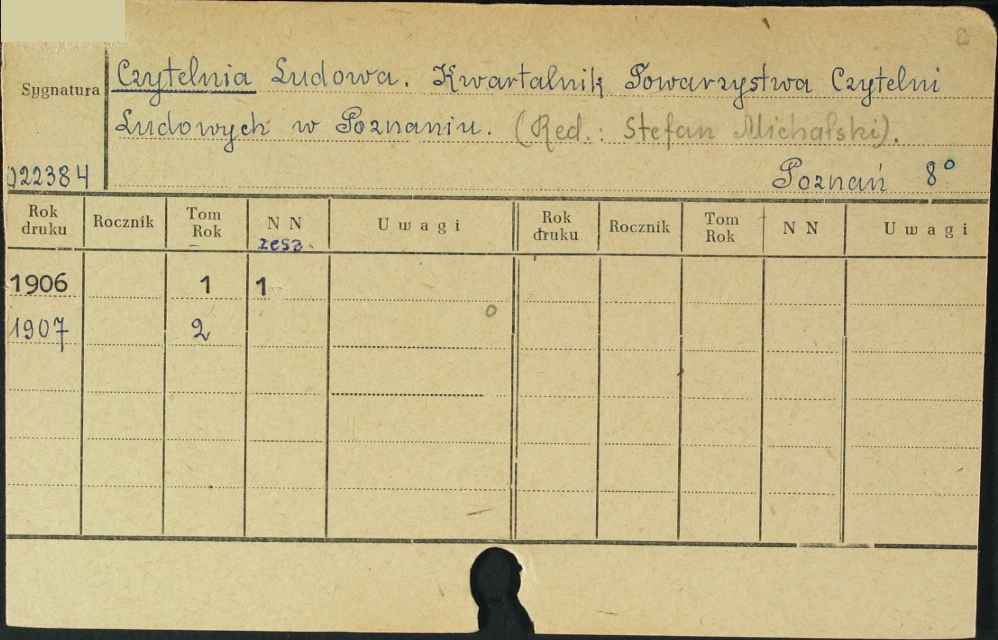 Czytelnia Ludowa. Kwartalnik Towarzystwa Czytelni
Sygnatura
Ludowych w Poznaniu. (Red.: Stefan Michalski).
022384
Poznań 8°
Rok druku Rocznik Tom Rok N N zesz. Uwagi Rok druku Rocznik Tom Rok N N Uwagi
1906 1 1
1907 2